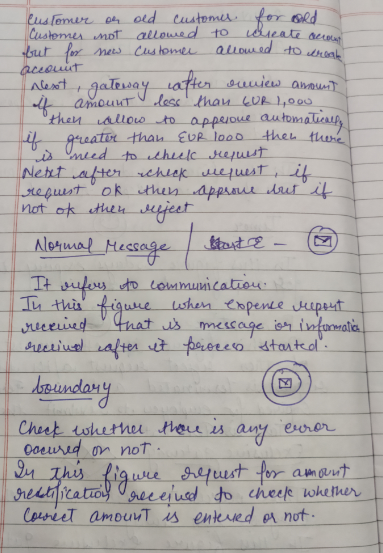 customer or old customer. for old
customer not allowed to create account
but for new customer allowed to create
account
Next, gateway after review amount
if amount less than EUR 1,000
then allow to approve automatically
if greater than EUR 1000 then there
is need to check request
Next after check request, if
request ok then approve but if
not ok then reject
Normal Message / -
It refers to communication.
In this figure when expense report
received that is message or information
received after it process started.
boundary
Check whether there is any error
occured or not.
In this figure request for amount
rectification received to check whether
correct amount is entered or not.